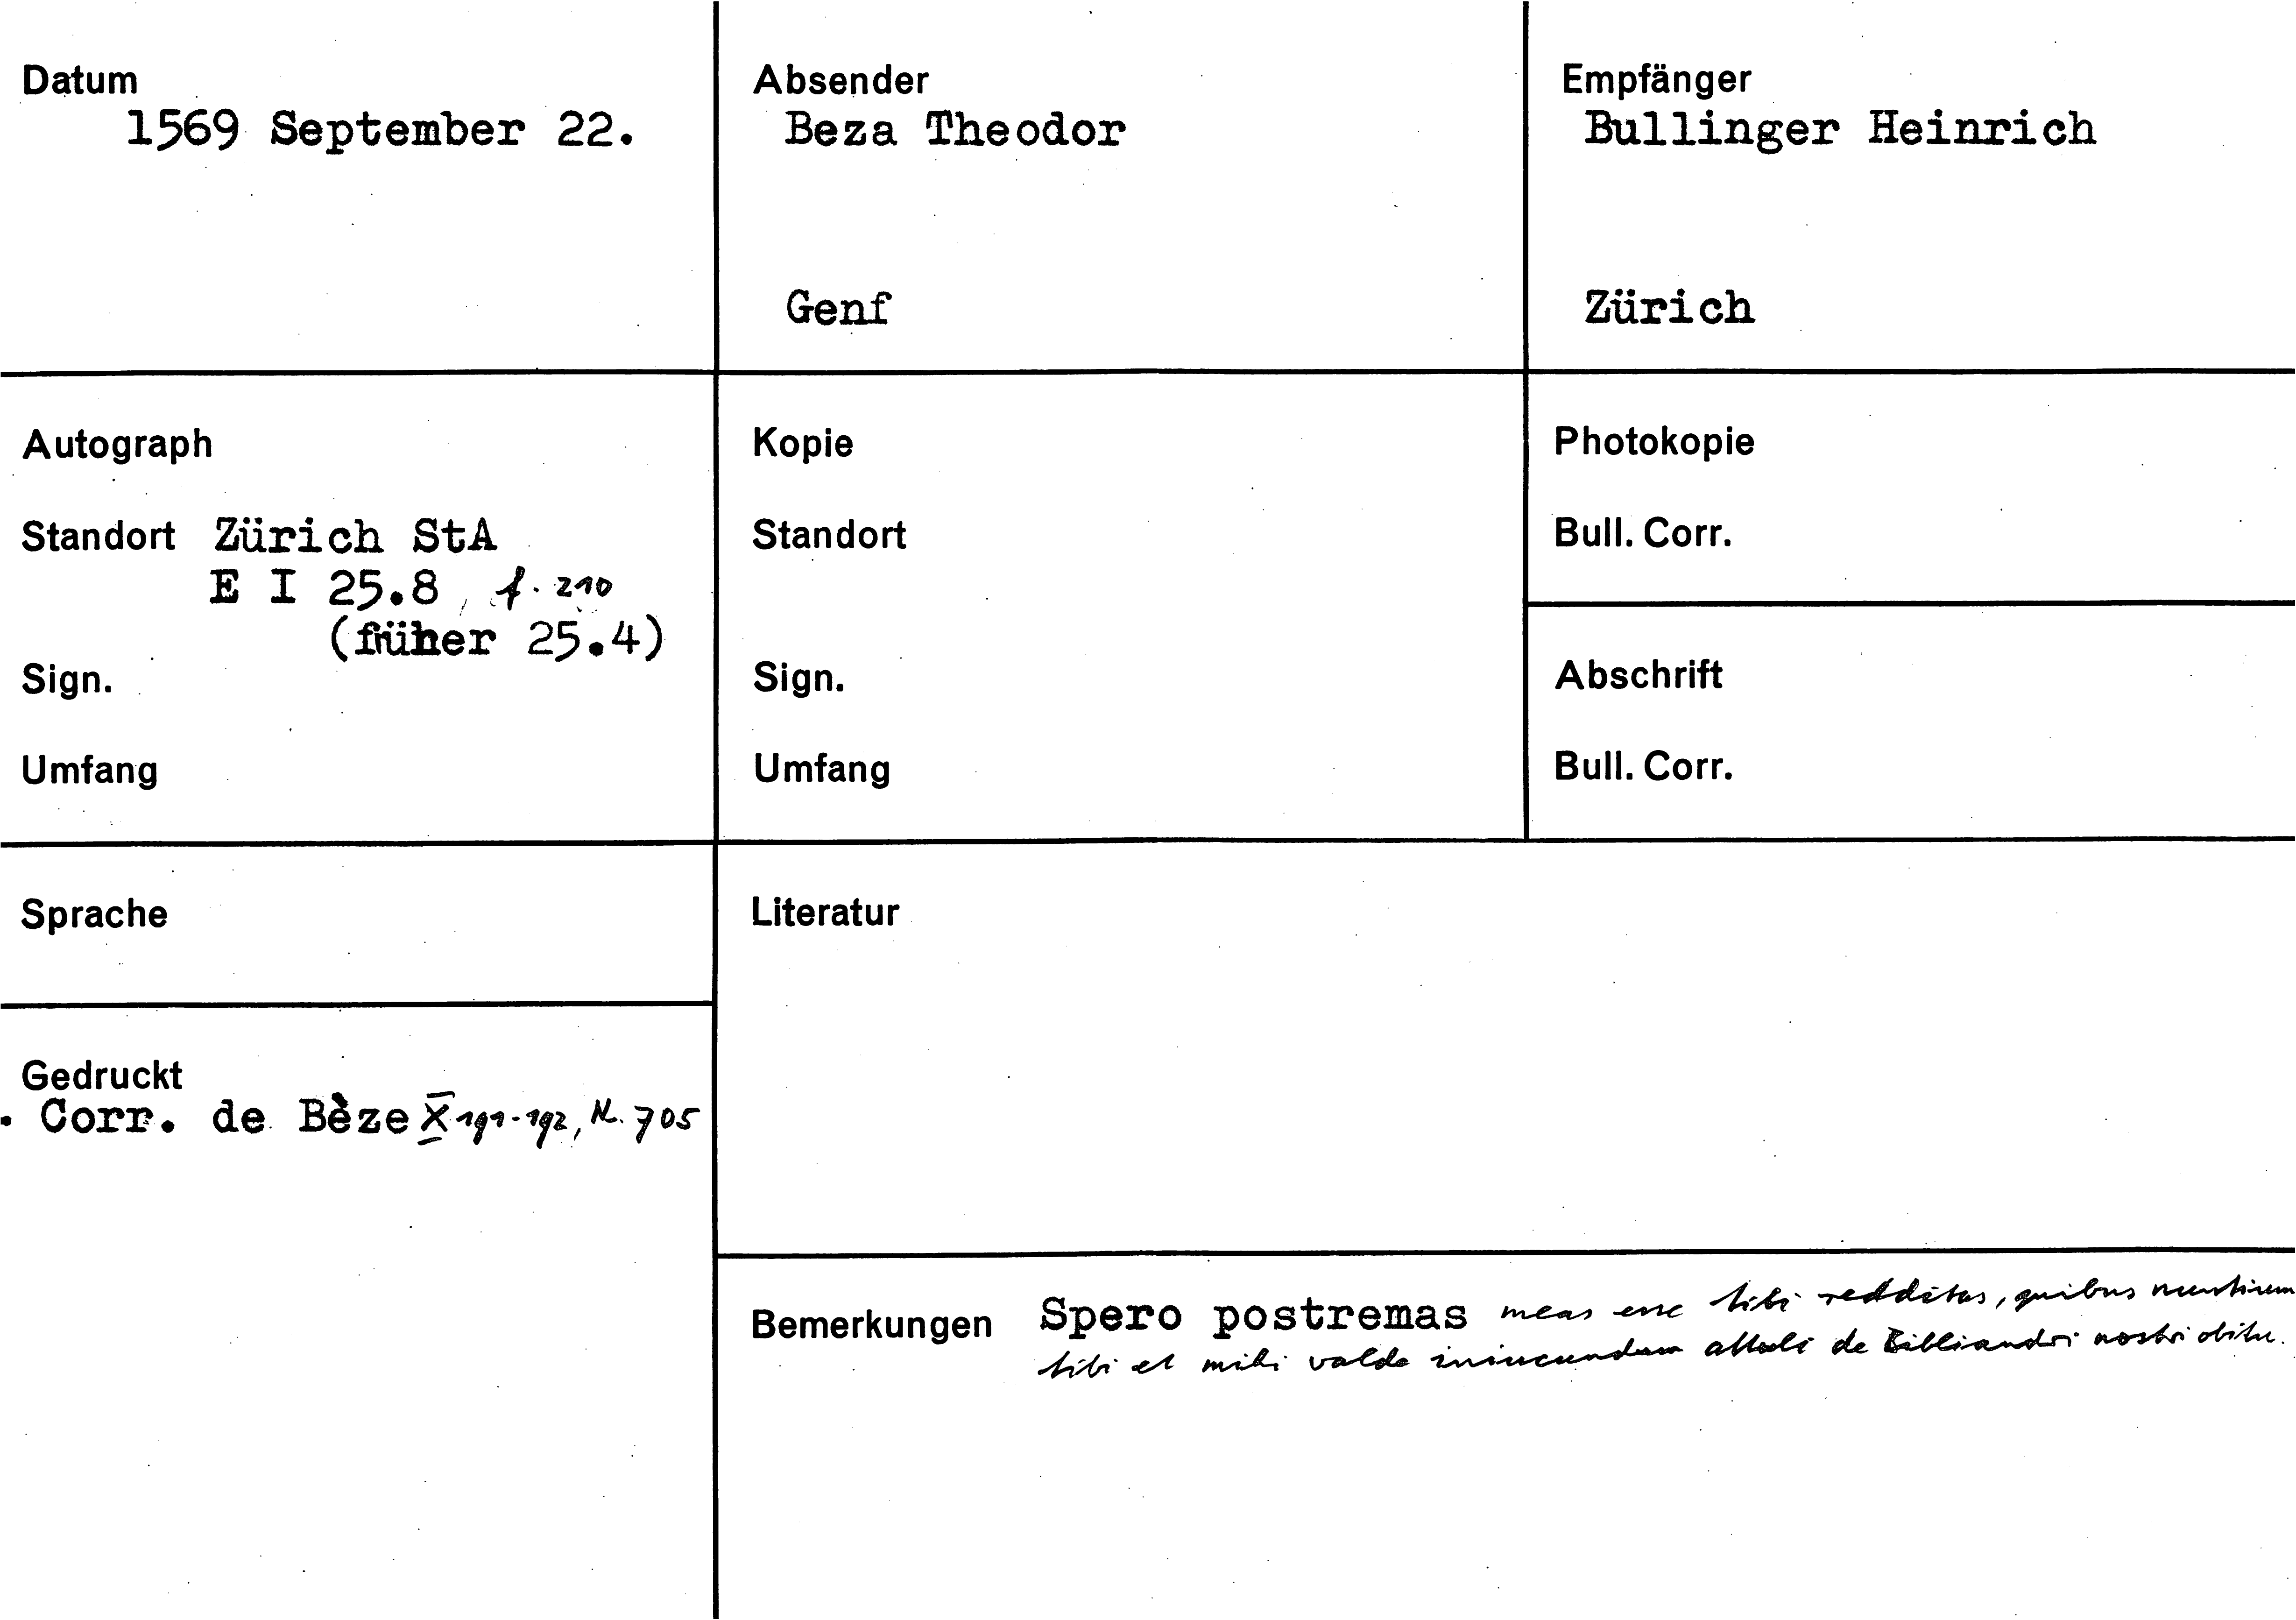 Datum
1569 September 22.
Absender
Beza Theodor
Genf
Empfänger
Bullinger Heinrich
Zürich
Autograph
Standort Zürich StA
E I 25.8, f. 210
(früher 25.4)
Sign.
Umfang
Kopie
Standort
Sign.
Umfang
Photokopie
Bull. Corr.
Abschrift
Bull. Corr.
Sprache
Gedruckt
. Corr. de Bèze X 191-192, N. 705
Literatur
Bemerkungen Spero postremas meas esse tibi redditas, quibus
tibi et mihi valde iniucundum attuli de Bibliandri nostri obitu.